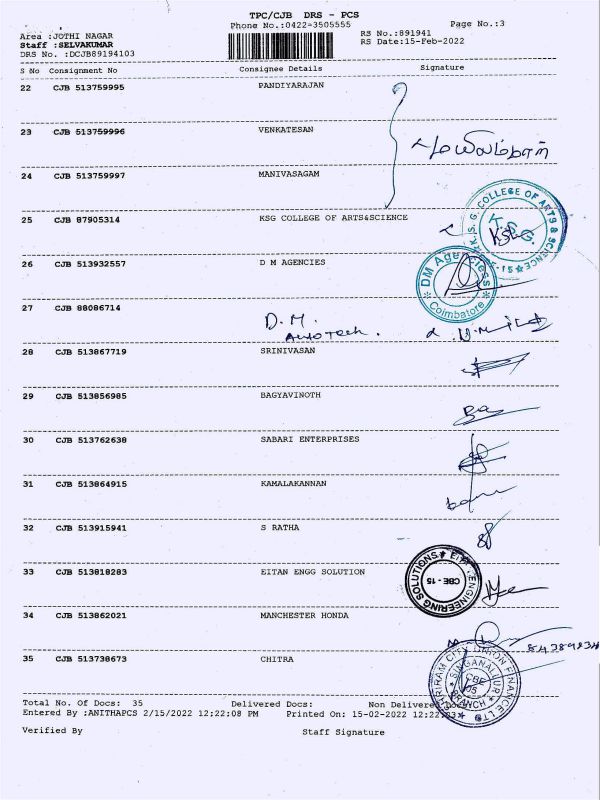 TPC/CJB DRS - PCS
Phone No.:0422-3505555
Page No.:3
Area :JOTHI NAGAR
RS No.:891941
Staff :SELVAKUMAR
RS Date:15-Feb-2022
DRS No. :DCJB89194103
S No Consignment No Consignee Details Signature
22 CJB 513759995 PANDIYARAJAN
23 CJB 513759996 VENKATESAN
24 CJB 513759997 MANIVASAGAM
25 CJB 87905314 KSG COLLEGE OF ARTS&SCIENCE
K.S.G. COLLEGE OF ARTS & SCIENCE
K.S.G.
26 CJB 513932557 D M AGENCIES
DM Agenciess
Coimbatore
27 CJB 88086714 D.M.
Auto Tech.
28 CJB 513867719 SRINIVASAN
29 CJB 513856985 BAGYAVINOTH
30 CJB 513762638 SABARI ENTERPRISES
31 CJB 513864915 KAMALAKANNAN
32 CJB 513915941 S RATHA
33 CJB 513818283 EITAN ENGG SOLUTION
EITAN ENGINEERING SOLUTIONS
CBE - 15
34 CJB 513862021 MANCHESTER HONDA
35 CJB 513738673 CHITRA
SHRIRAM CITY UNION FINANCE LTD
SINGANALLUR
CBE
05
BRANCH
Total No. Of Docs: 35 Delivered Docs: Non Delivered Docs:
Entered By :ANITHAPCS 2/15/2022 12:22:08 PM Printed On: 15-02-2022 12:22:03
Verified By Staff Signature